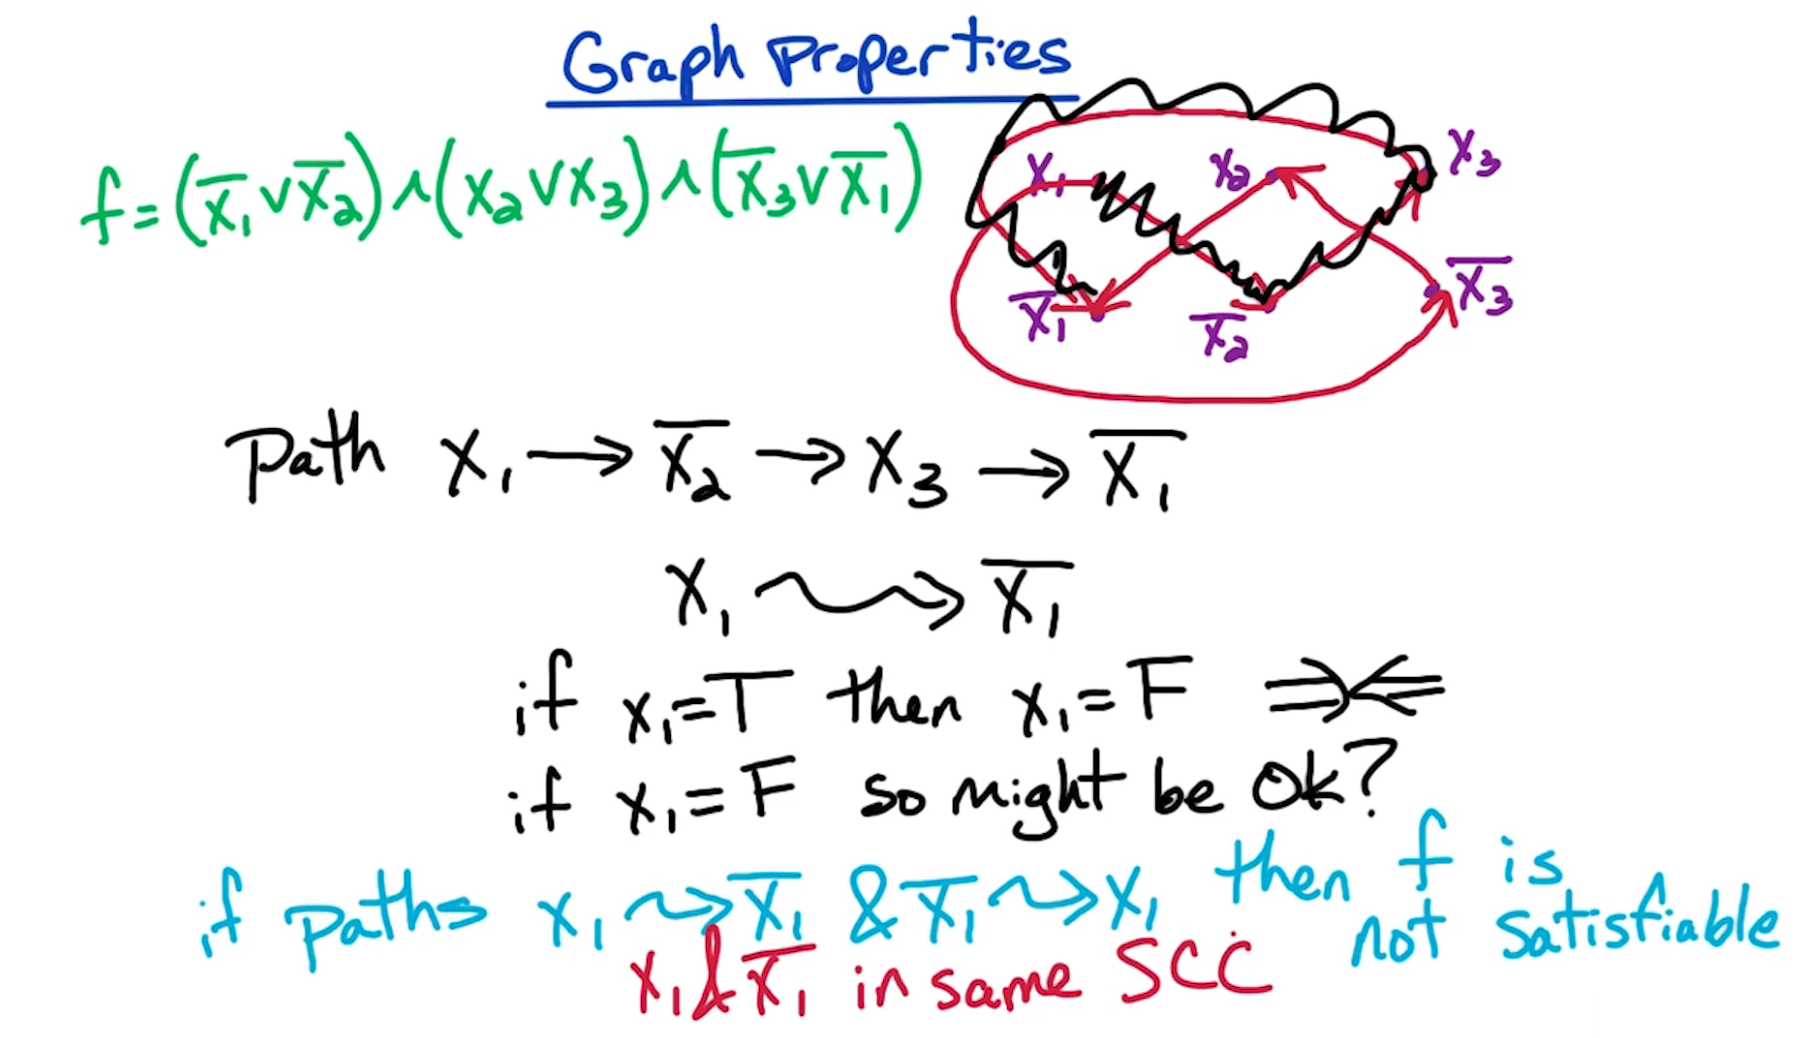 Graph Properties
f = (x̅₁ ∨ x̅₂) ∧ (x₂ ∨ x₃) ∧ (x̅₃ ∨ x̅₁)
x₁ x₂ x₃
x̅₁ x̅₂ x̅₃
Path x₁ → x̅₂ → x₃ → x̅₁
x₁ ⇝ x̅₁
if x₁=T then x₁=F ⇒⇐
if x₁=F so might be ok?
if paths x₁ ⇝ x̅₁ & x̅₁ ⇝ x₁ then f is
not satisfiable
x₁ & x̅₁ in same SCC